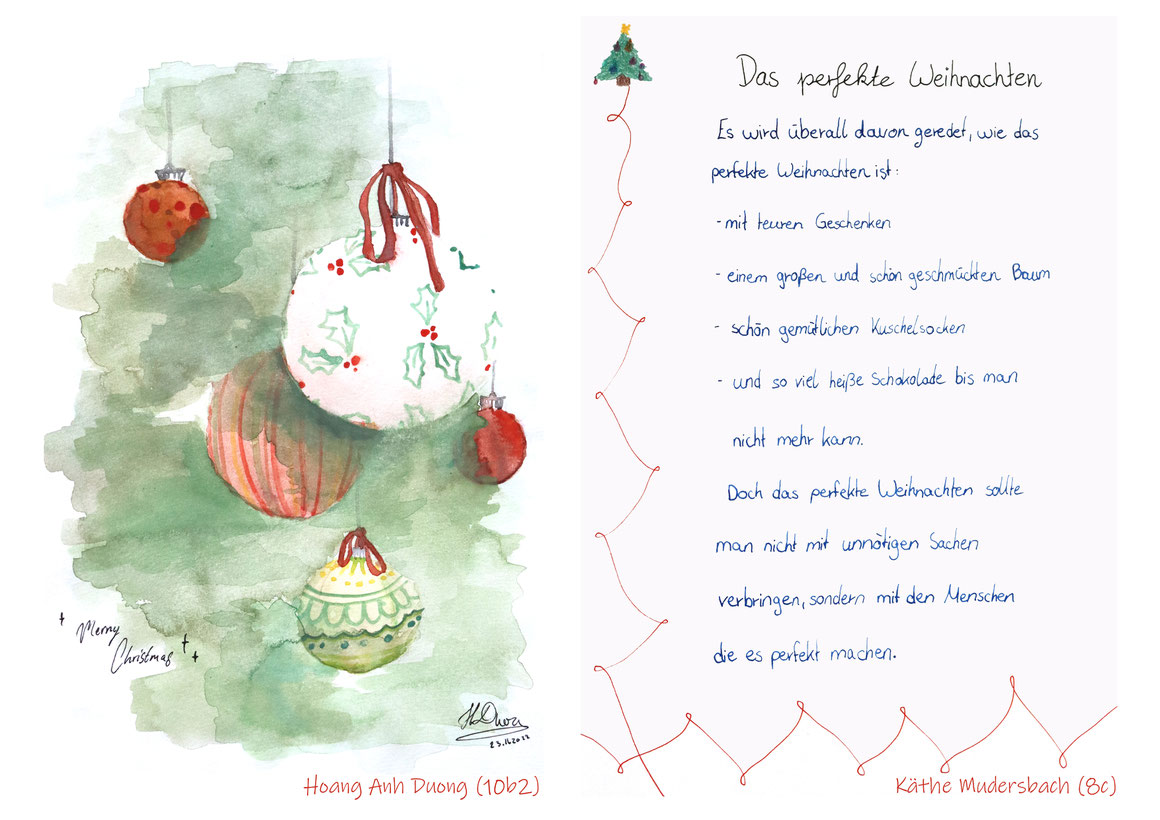 Merry
Christmas
23.11.2022
Hoang Anh Duong (10b2)
Das perfekte Weihnachten
Es wird überall davon geredet, wie das
perfekte Weihnachten ist:
- mit teuren Geschenken
- einem großen und schön geschmückten Baum
- schön gemütlichen Kuschelsocken
- und so viel heiße Schokolade bis man
nicht mehr kann.
Doch das perfekte Weihnachten sollte
man nicht mit unnötigen Sachen
verbringen, sondern mit den Menschen
die es perfekt machen.
Käthe Mudersbach (8c)